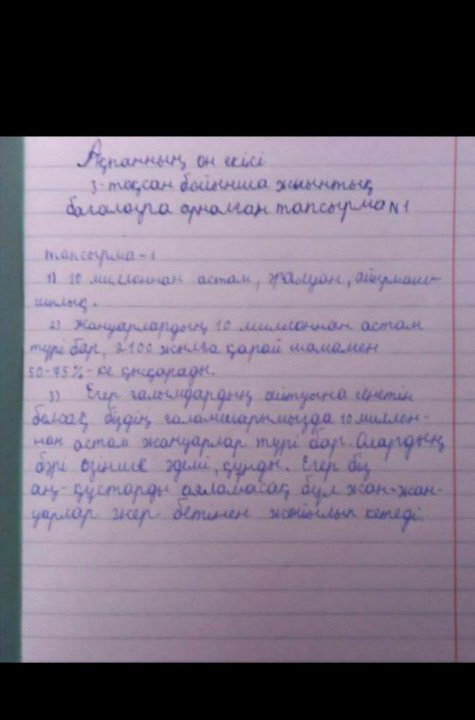 Ақпанның он екісі
3-тоқсан бойынша жиынтық
бағалауға арналған тапсырма №1
тапсырма-1
1) 10 миллионнан астам, алуан,
шылық.
2) Жануарлардың 10 миллионнан астам
түрі бар, 2100 жылға қарай шамамен
50-95%-ке қысқарады.
3) Егер ғалымдардың айтуына сенетін
болсақ біздің ғаламшарымызда 10 миллон-
нан астам жануарлар түрі бар. Олардың
бәрі өзінше әдемі, құнды. Егер біз
аң-құстарды аяламасақ бұл жан-жан-
уарлар жер бетінен жойылып кетеді.